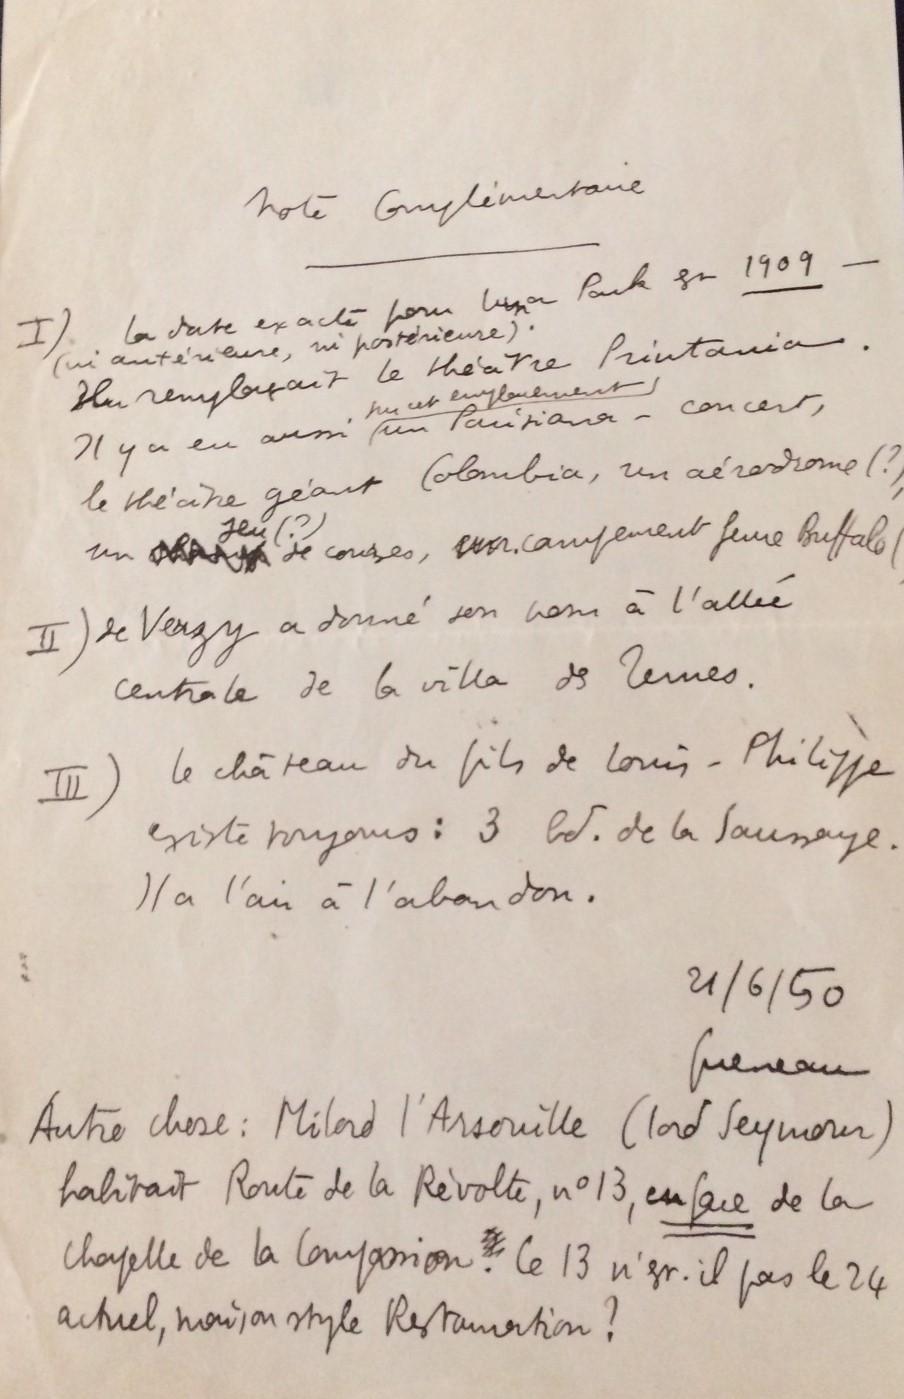 Note Complémentaire
I) La date exacte pour Luna Park est 1909 —
(ni antérieure, ni postérieure).
Il remplaçait le théâtre Printania.
sur cet emplacement
Il y a eu aussi (un Parisiana - concert,
le théâtre géant Colombia, un aérodrome (?),
jeu (?)
un de courses, un campement genre Buffalo (
II) de Verzy a donné son nom à l'allée
centrale de la villa des Ternes.
III) Le château du fils de Louis-Philippe
existe toujours : 3 bd. de la Saussaye.
Il a l'air à l'abandon.
21/6/50
Gueneau
Autre chose : Milord l'Arsouille (lord Seymour)
habitait Route de la Révolte, n° 13, en face de la
chapelle de la Compassion. Ce 13 n'est-il pas le 24
actuel, maison style Restauration ?